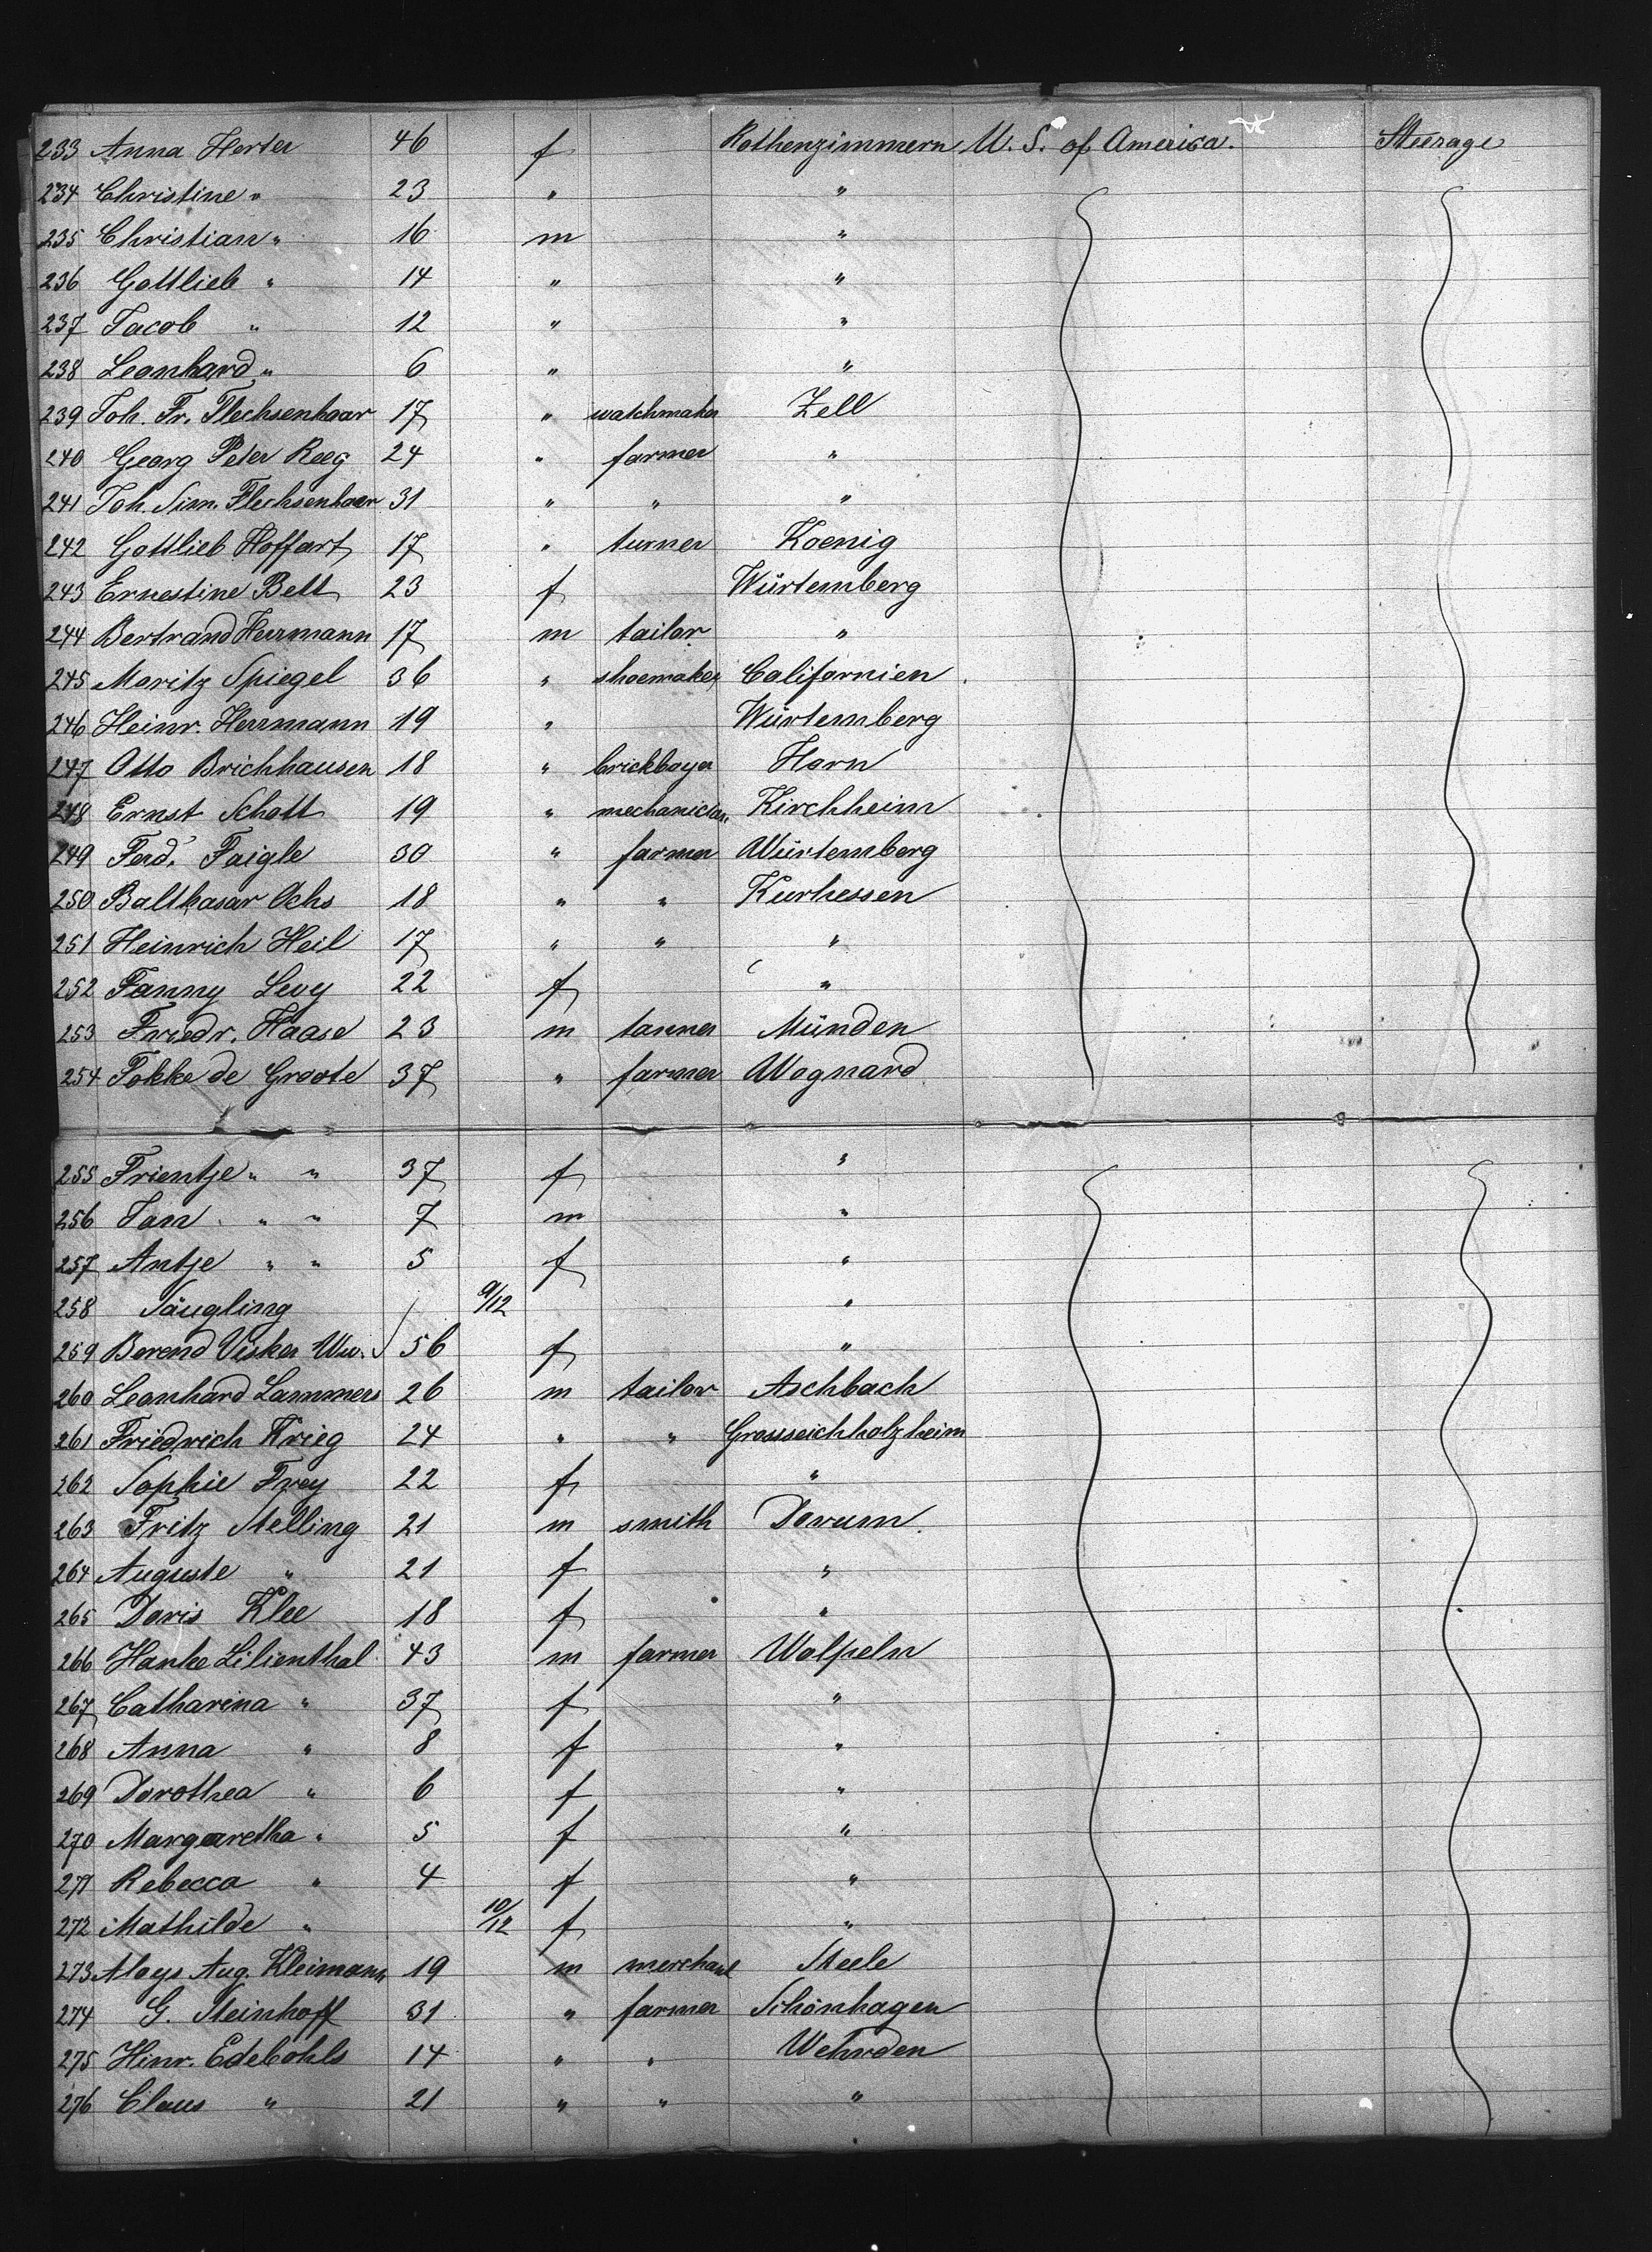 233 Anna Herter 46 f Rothenzimmern U. S. of America. Steerage
234 Christine " 23 " "
235 Christian " 16 m "
236 Gottlieb " 14 " "
237 Jacob " 12 " "
238 Leonhard " 6 " "
239 Joh. Fr. Flechsenhaar 17 " watchmaker Zell
240 Georg Peter Reeg 24 " farmer "
241 Joh. Sim. Flechsenhaar 31 " " "
242 Gottlieb Hoffart 17 " turner Koenig
243 Ernestine Belt 23 f Würtemberg
244 Bertrand Herrmann 17 m tailor "
245 Moritz Spiegel 36 " shoemaker Californien
246 Heinr. Herrmann 19 " Würtemberg
247 Otto Brichhausen 18 " bricklayer Horn
248 Ernst Schott 19 " mechanician Kirchheim
249 Ferd. Faigle 30 " farmer Würtemberg
250 Balthasar Ochs 18 " " Kurhessen
251 Heinrich Heil 17 " " "
252 Fanny Levy 22 f "
253 Friedr. Haase 23 m tanner Münden
254 Fokke de Groote 37 " farmer Wognard
255 Frientje " " 37 f "
256 Jan " " 7 m "
257 Antje " " 5 f "
258 Säugling 9/12 "
259 Berend Visker Ww. 56 f "
260 Leonhard Lammers 26 m tailor Aschbach
261 Friedrich Krieg 24 " " Grosseichholzheim
262 Sophie Frey 22 f "
263 Fritz Stelling 21 m smith Dorum
264 Auguste " 21 f "
265 Doris Klee 18 f "
266 Hanke Lilienthal 43 m farmer Wolpeln
267 Catharina " 37 f "
268 Anna " 8 f "
269 Dorothea " 6 f "
270 Margaretha " 5 f "
271 Rebecca " 4 f "
272 Mathilde " 10/12 f "
273 Aloys Aug. Kleimann 19 m merchant Steele
274 G. Steinhoff 31 " farmer Schönhagen
275 Hinr. Edebohls 14 " " Wehrden
276 Claus " 21 " " "